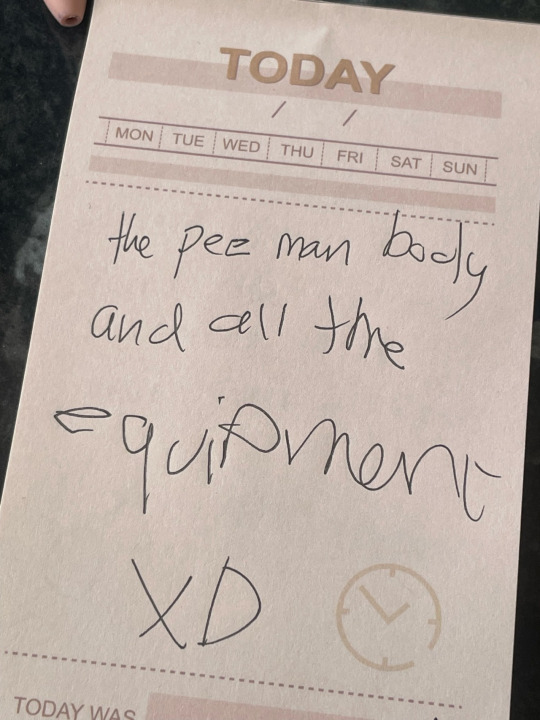 TODAY
/ /
MON TUE WED THU FRI SAT SUN
the pee man body
and all the
equipment
XD
TODAY WAS